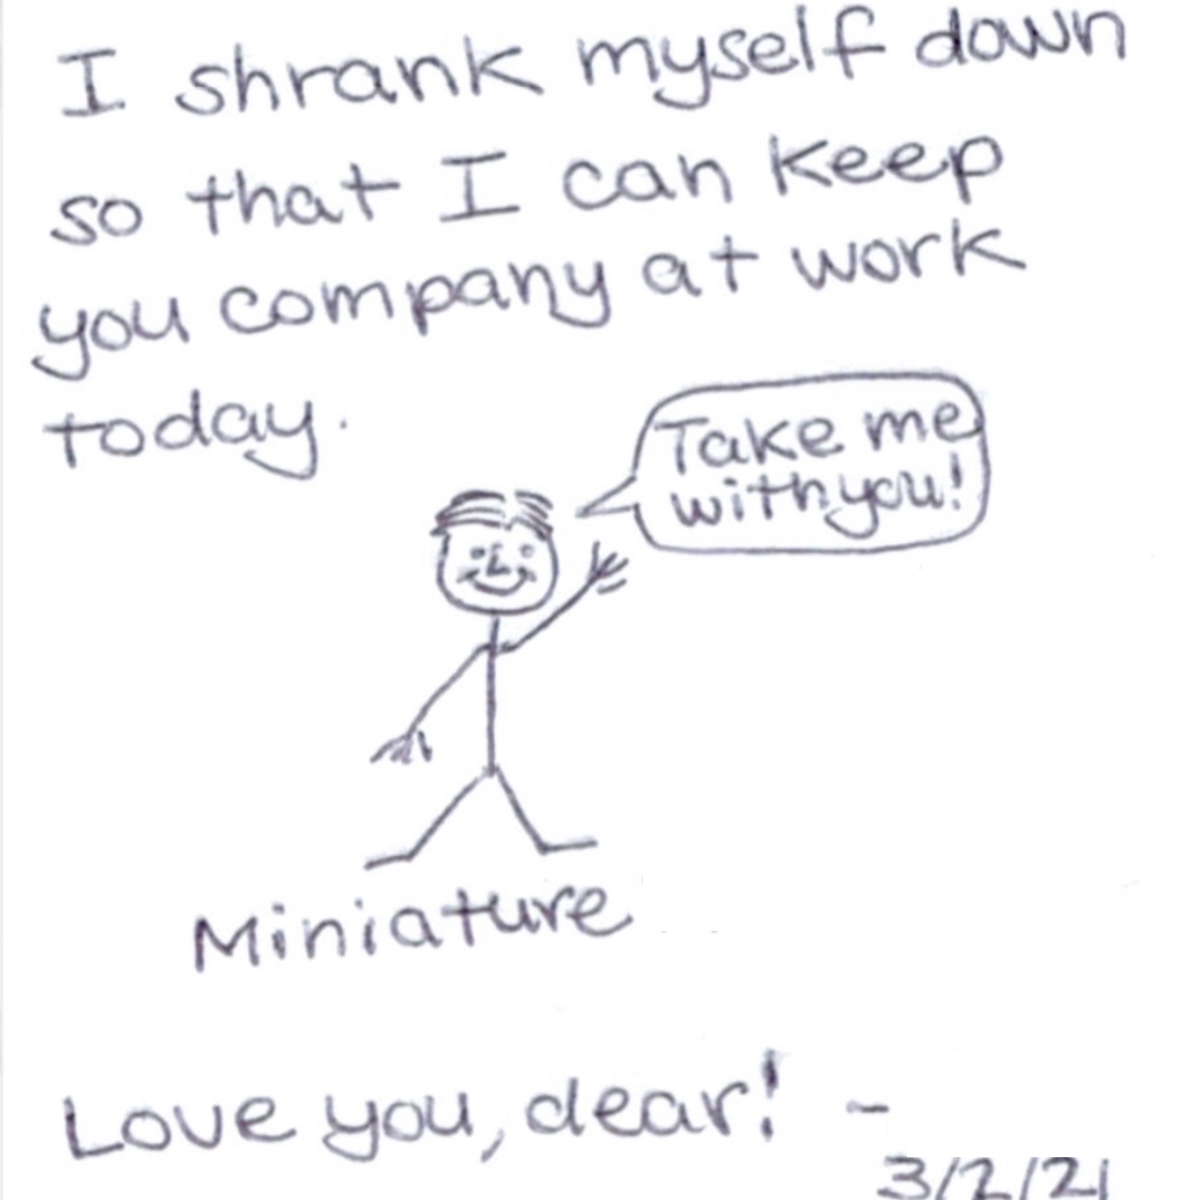 I shrank myself down
so that I can keep
you company at work
today.
Take me
with you!
Miniature
Love you, dear! -
3/2/21